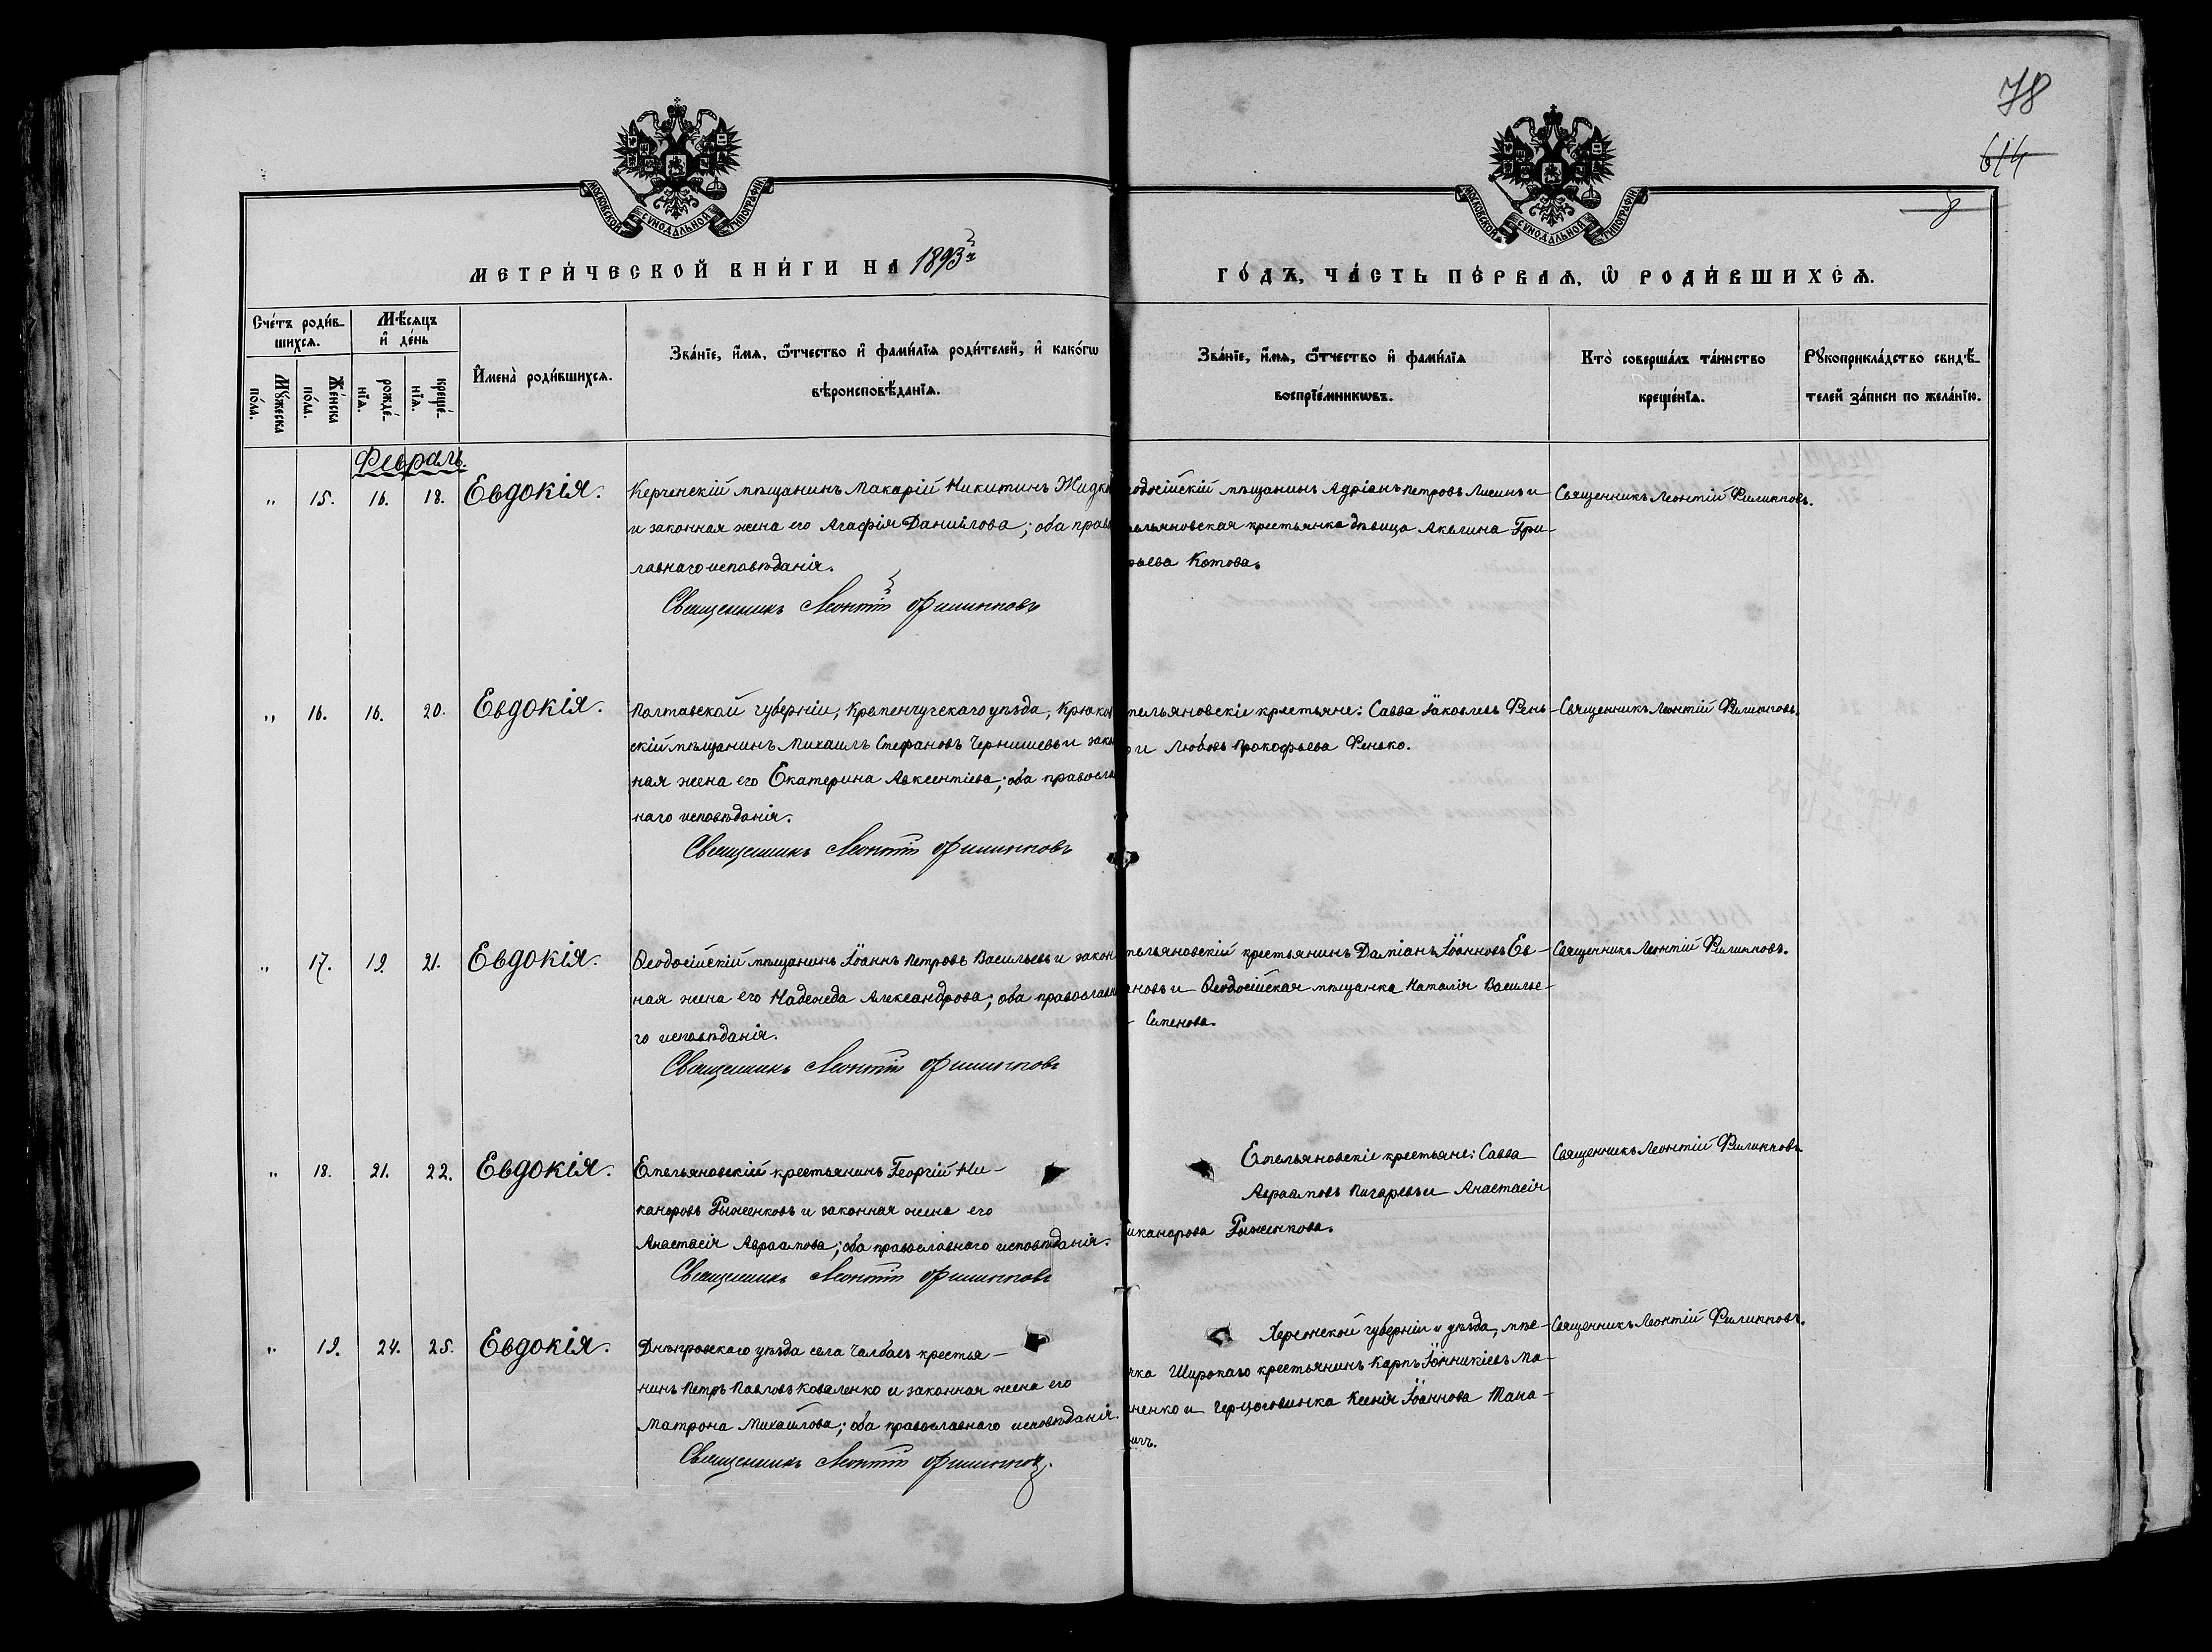 78
614
8
МОСКОВСКОЙ СѴНОДАЛЬНОЙ ТИПОГРАФІИ
МОСКОВСКОЙ СѴНОДАЛЬНОЙ ТИПОГРАФІИ
МЕТРИ́ЧЕСКОЙ КНИ́ГИ НА 1893й
ГО́ДЪ, ЧА́СТЬ ПЕ́РВАѦ, Ѡ҆ РОДИ́ВШИХСѦ.
Сче́тъ роди́в-
шихсѧ.
Мꙋ́жеска по́ла.
Же́нска по́ла.
Мѣ́сѧцъ
и҆ де́нь
рожде́-
нїѧ.
креще́-
нїѧ.
И҆мена̀ роди́вшихсѧ.
Зва́нїе, и҆́мѧ, ѻ҆́тчество и҆ фами́лїѧ роди́телей, и҆ како́гѡ
вѣроисповѣ́данїѧ.
Зва́нїе, и҆́мѧ, ѻ҆́тчество и҆ фами́лїѧ
воспрїе́мникѡвъ.
Кто̀ соверша́лъ та́инство
креще́нїѧ.
Рꙋкоприкла́дство свидѣ́-
телей за́писи по жела́нїю.
Февраль.
" 15. 16. 18. Евдокія.
Керченскій мѣщанинъ Макарій Никитинъ Жидк
и законная жена его Агафія Даниилова; оба прав
лавнаго исповѣданія.
Священникъ Леонтій Филипповъ
одосійскій мѣщанинъ Адріанъ Петровъ Лисинъ и
ельяновская крестьянка дѣвица Акелина Гри-
рьева Котова.
Священникъ Леонтій Филипповъ.
" 16. 16. 20. Евдокія.
Полтавской губерніи, Кременчугскаго уѣзда, Крюков
скій мѣщанинъ Михаилъ Стефановъ Чернышевъ и закон
ная жена его Екатерина Авксентіева; оба православ
наго исповѣданія.
Священникъ Леонтій Филипповъ
мельяновскіе крестьяне: Савва Іаковлевъ Фень-
о и Любовь Прокофьева Фенько.
Священникъ Леонтій Филипповъ.
" 17. 19. 21. Евдокія.
Ѳеодосійскій мѣщанинъ Іоаннъ Петровъ Васильевъ и закон
ная жена его Надежда Александрова; оба православна
го исповѣданія.
Священникъ Леонтій Филипповъ
мельяновскій крестьянинъ Даміанъ Іоанновъ Ев-
ановъ и Ѳеодосійская мѣщанка Наталія Василье-
- Семенова.
Священникъ Леонтій Филипповъ.
" 18. 21. 22. Евдокія.
Емельяновскій крестьянинъ Георгій Ни-
каноровъ Рыженковъ и законная жена его
Анастасія Авраамова; оба православнаго исповѣданія.
Священникъ Леонтій Филипповъ
Емельяновскіе крестьяне: Савва
Авраамовъ Пигаревъ и Анастасія
иканорова Рыженкова.
Священникъ Леонтій Филипповъ
" 19. 24. 25. Евдокія.
Днѣпровскаго уѣзда села Чалбасъ крестья-
нинъ Петръ Павловъ Коваленко и законная жена его
Матрона Михайлова; оба православнаго исповѣданія.
Священникъ Леонтій Филипповъ.
Херсонской губерніи и уѣзда, мѣс-
чка Широкаго крестьянинъ Карпъ Іоанникіевъ Ма-
ненко и Герцоговинка Ксенія Іоаннова Тана-
ичъ.
Священникъ Леонтій Филипповъ.